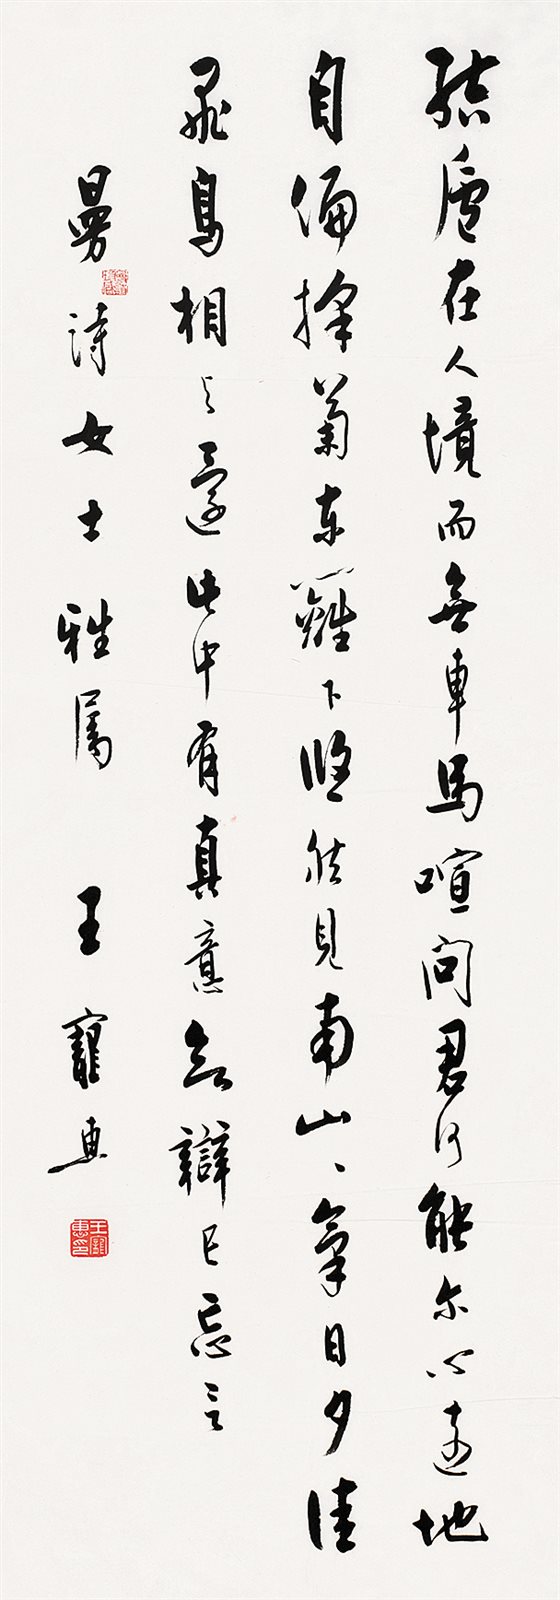 結廬在人境而無車馬喧問君何能尔心遠地
自偏採菊東籬下悠然見南山〻氣日夕佳
飛鳥相与還此中有真意欲辯已忘言
曼詩女士雅属 王寵惠
王寵惠印